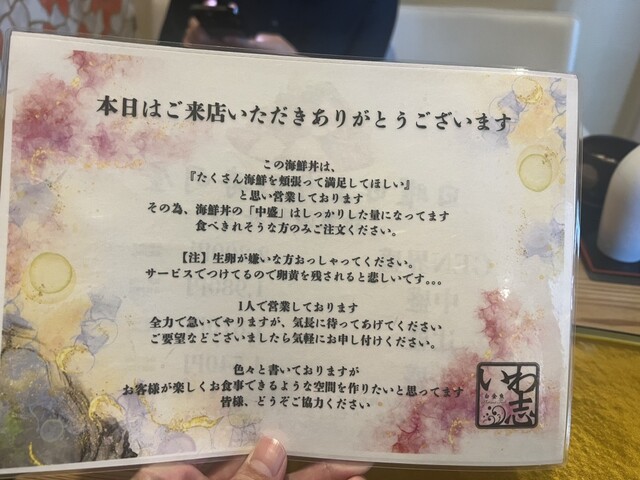 本日はご来店いただきありがとうございます
この海鮮丼は、
『たくさん海鮮を頬張って満足してほしい』
と思い営業しております
その為、海鮮丼の「中盛」はしっかりした量になってます
食べきれそうな方のみご注文ください。
【注】生卵が嫌いな方おっしゃってください。
サービスでつけてるので卵黄を残されると悲しいです。。。
1人で営業しております
全力で急いでやりますが、気長に待ってあげてください
ご要望などございましたら気軽にお申し付けください。
色々と書いておりますが
お客様が楽しくお食事できるような空間を作りたいと思ってます
皆様、どうぞご協力ください
いわ志